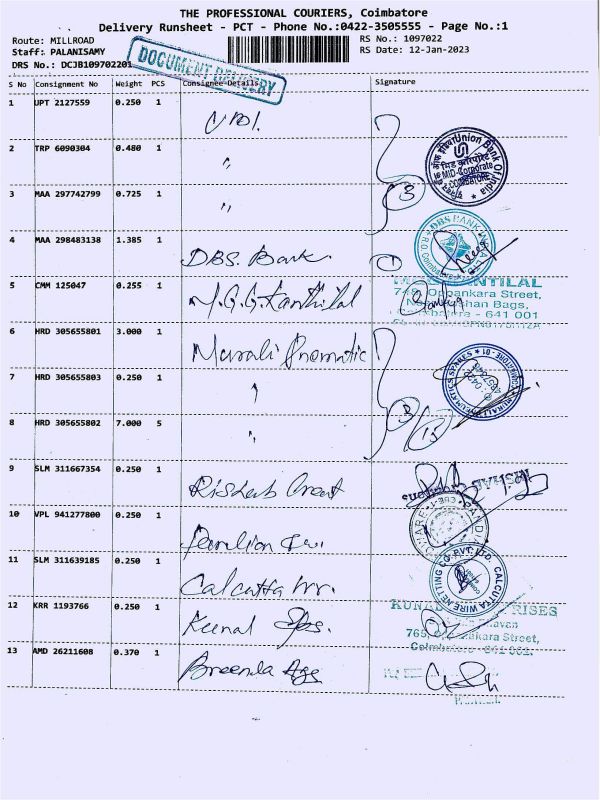 THE PROFESSIONAL COURIERS, Coimbatore
Delivery Runsheet - PCT - Phone No.:0422-3505555 - Page No.:1
Route: MILLROAD RS No.: 1097022
Staff: PALANISAMY RS Date: 12-Jan-2023
DRS No.: DCJB109702201
DOCUMENT DELIVERY
S No Consignment No Weight PCS Consignee Details Signature
1 UPT 2127559 0.250 1
2 TRP 6090304 0.480 1 "
3 MAA 297742799 0.725 1 "
3
Union Bank Of India
MID-Corporate
COIMBATORE
4 MAA 298483138 1.385 1 DBS. Bank 1
DBS BANK INDIA
R.O. Coimbatore
5 CMM 125047 0.255 1 Kanthilal
KANTILAL
Oppankara Street,
Bags,
641 001
6 HRD 305655801 3.000 1 Murali Pnematic
7 HRD 305655803 0.250 1 "
8 HRD 305655802 7.000 5 "
3/15
MURALI PNEUMATICS SPARES
COIMBATORE - 01
0422
9 SLM 311667354 0.250 1 Rishab Creat
RISHAB
10 VPL 941277800 0.250 1
CBE-1
11 SLM 311639185 0.250 1 Calcutta
CALCUTTA WIRE NETTING CO. PVT. LTD.
12 KRR 1193766 0.250 1 Kunal
KUNAL ENTERPRISES
765, Oppankara Street,
Coimbatore - 641 001.
13 AMD 26211608 0.370 1 Breenda Ags